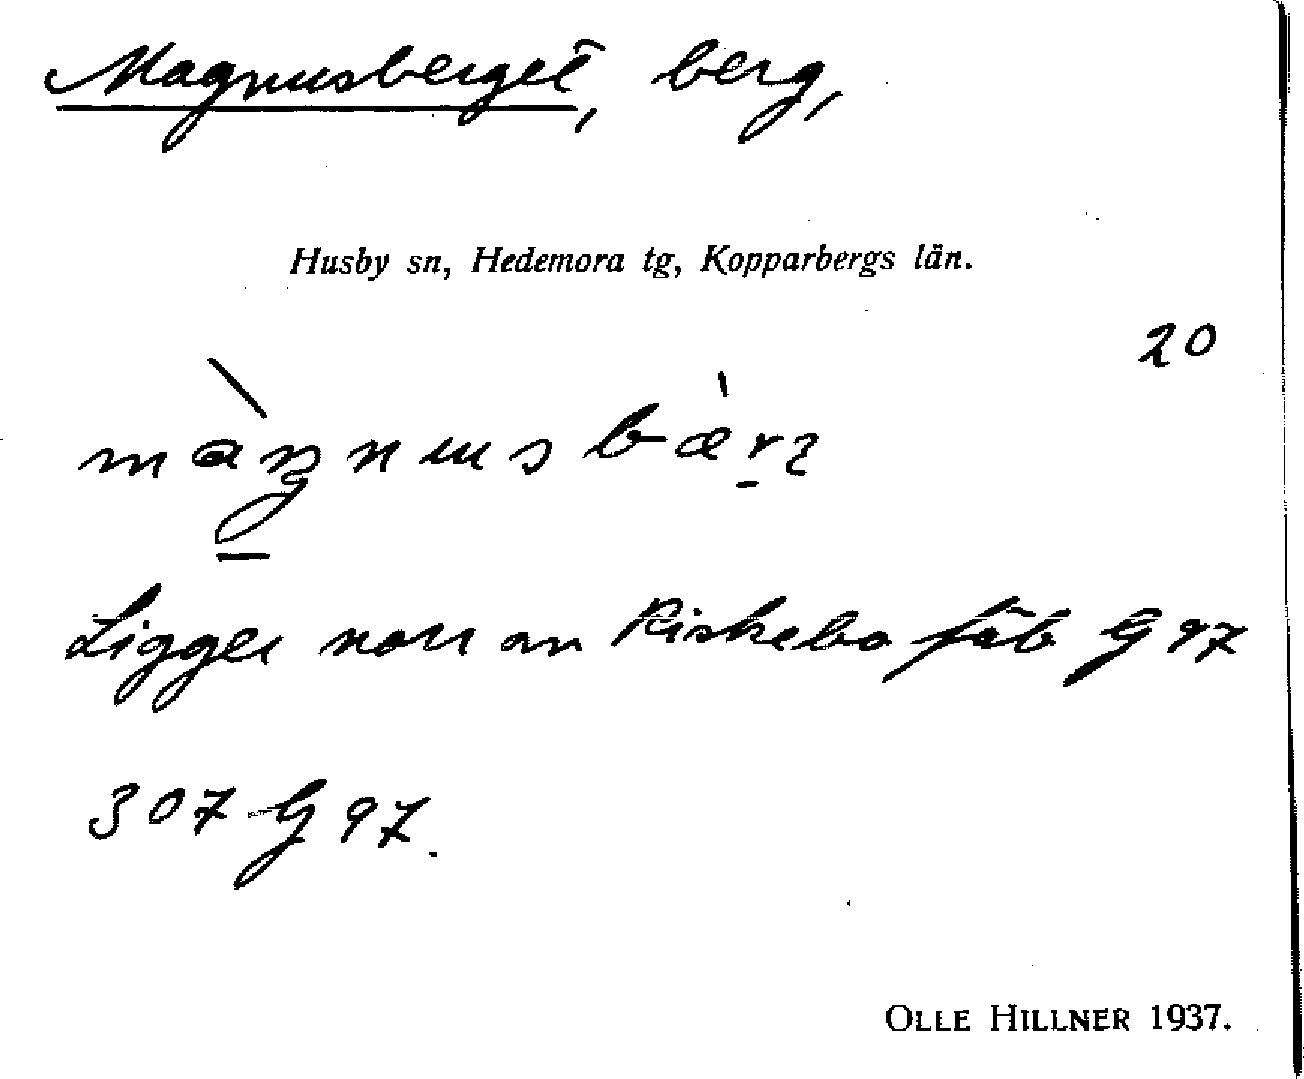 Magnusberget, berg,
Husby sn, Hedemora tg, Kopparbergs län.
20
Ligger norr om Riskebo fäb G 97
307 G 97.
OLLE HILLNER 1937.